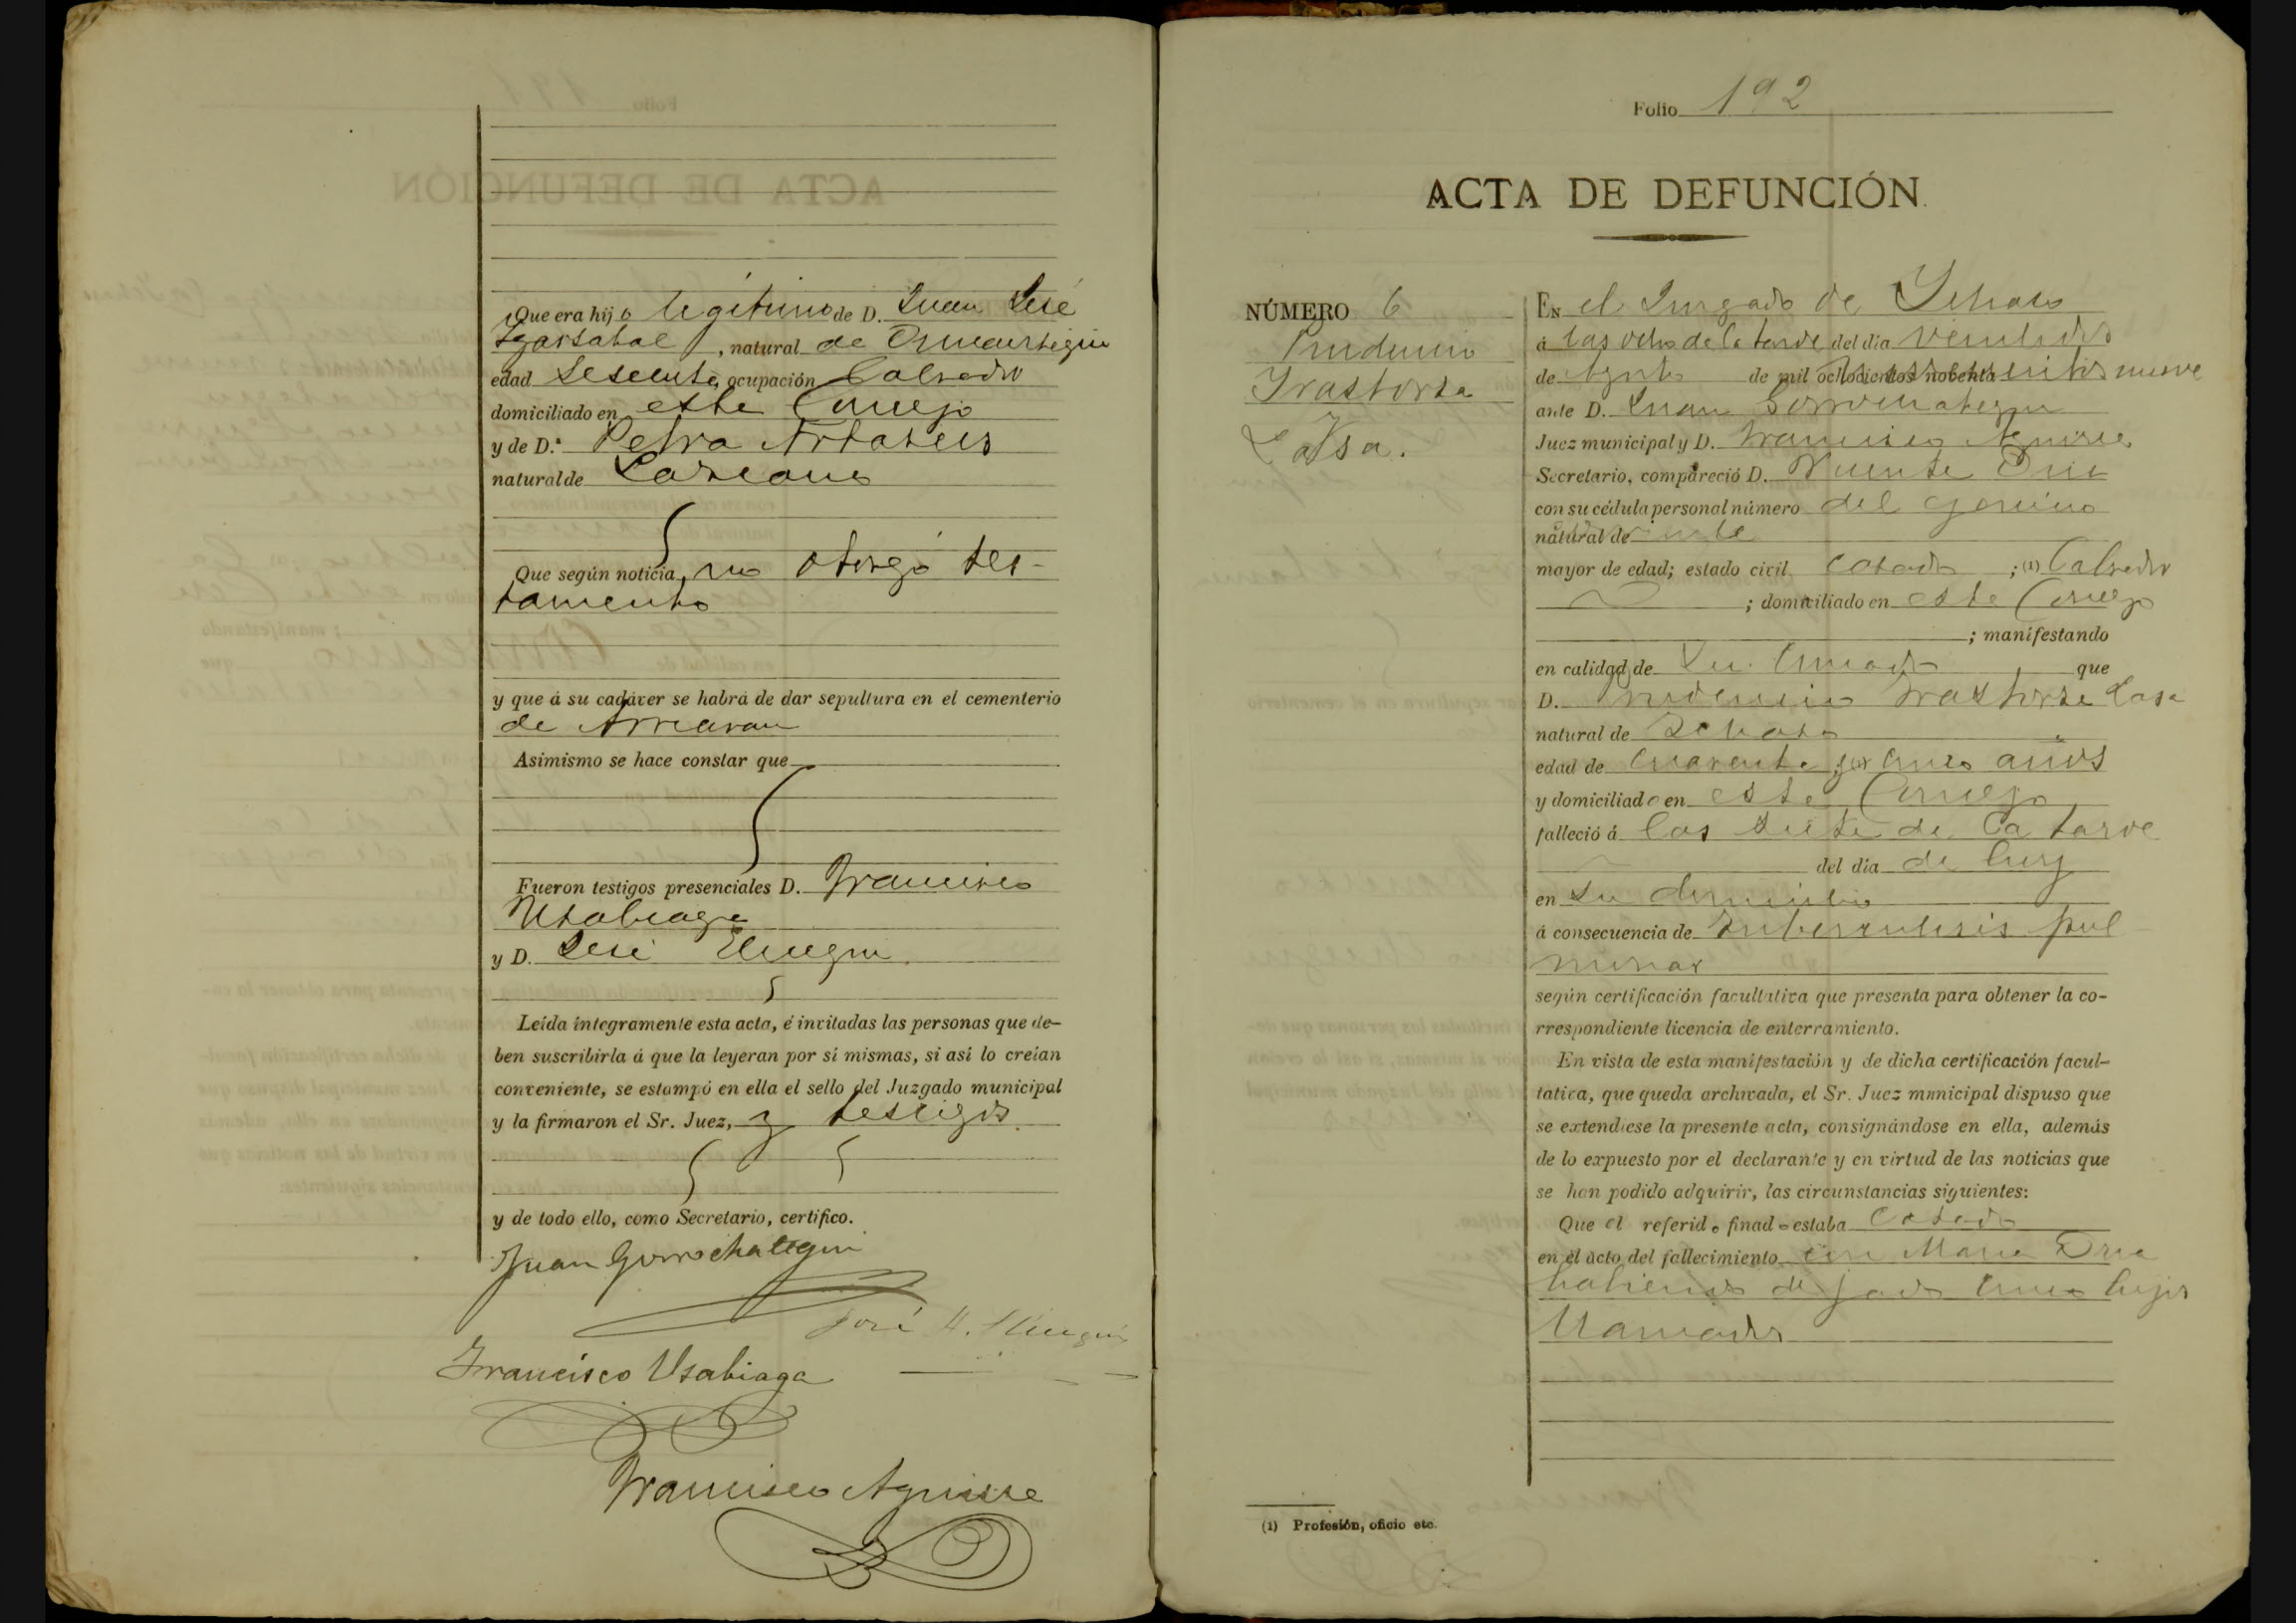 Que era hijo legítimo de D. Juan José
Igarzabal, natural de Ormaiztegui
edad Sesenta, ocupación Labrador
domiciliado en este Concejo
y de D.ª Petra
natural de Lazcano
Que según noticia, no otorgó tes-
tamento
y que á su cadáver se habrá de dar sepultura en el cementerio
de Arriaran
Asimismo se hace constar que
Fueron testigos presenciales D. Francisco
Usabiaga
y D. José
Leída íntegramente esta acta, é invitadas las personas que de-
ben suscribirla á que la leyeran por sí mismas, si así lo creían
conveniente, se estampó en ella el sello del Juzgado municipal
y la firmaron el Sr. Juez, y testigos
y de todo ello, como Secretario, certifico.
Juan Gorrochategui
José
Francisco Usabiaga
Francisco Aguirre
Folio 192
ACTA DE DEFUNCIÓN.
NÚMERO 6
Prudencio
Irastorza
Lasa.
En el Juzgado de
á las ocho de la tarde del día veintidos
de Agosto de mil ochocientos noventa novecientos nueve
ante D. Juan Gorrochategui
Juez municipal y D. Francisco Aguirre
Secretario, compareció D. Vicente Oria
con su cédula personal número del
natural de
mayor de edad; estado civil casado ; (1) Labrador
; domiciliado en este Concejo
; manifestando
en calidad de su cuñado que
D. Prudencio Irastorza Lasa
natural de
edad de cuarenta y cinco años
y domiciliado en este Concejo
falleció á las siete de la tarde
del día de hoy
en su domicilio
á consecuencia de Tuberculosis pul
monar
según certificación facultativa que presenta para obtener la co-
rrespondiente licencia de enterramiento.
En vista de esta manifestación y de dicha certificación facul-
tativa, que queda archivada, el Sr. Juez municipal dispuso que
se extendiese la presente acta, consignándose en ella, además
de lo expuesto por el declarante y en virtud de las noticias que
se han podido adquirir, las circunstancias siguientes:
Que el referido finado estaba casado
en el acto del fallecimiento con Maria Oria
habiendo dejado cinco hijos
llamados
(1) Profesión, oficio etc.